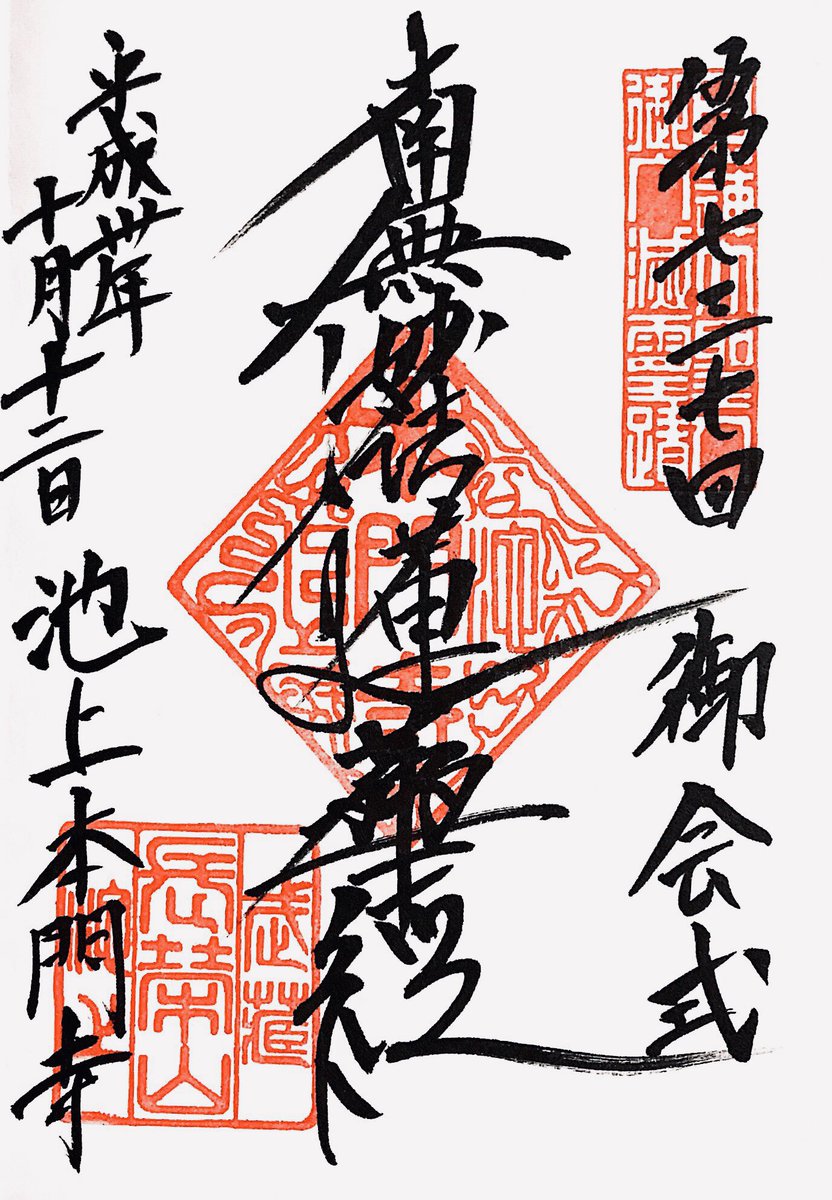 第七三七回 御会式
南無妙法蓮華経
平成卅年
十月十二日 池上本門寺
御入滅靈蹟
武蔵
長榮山
池上